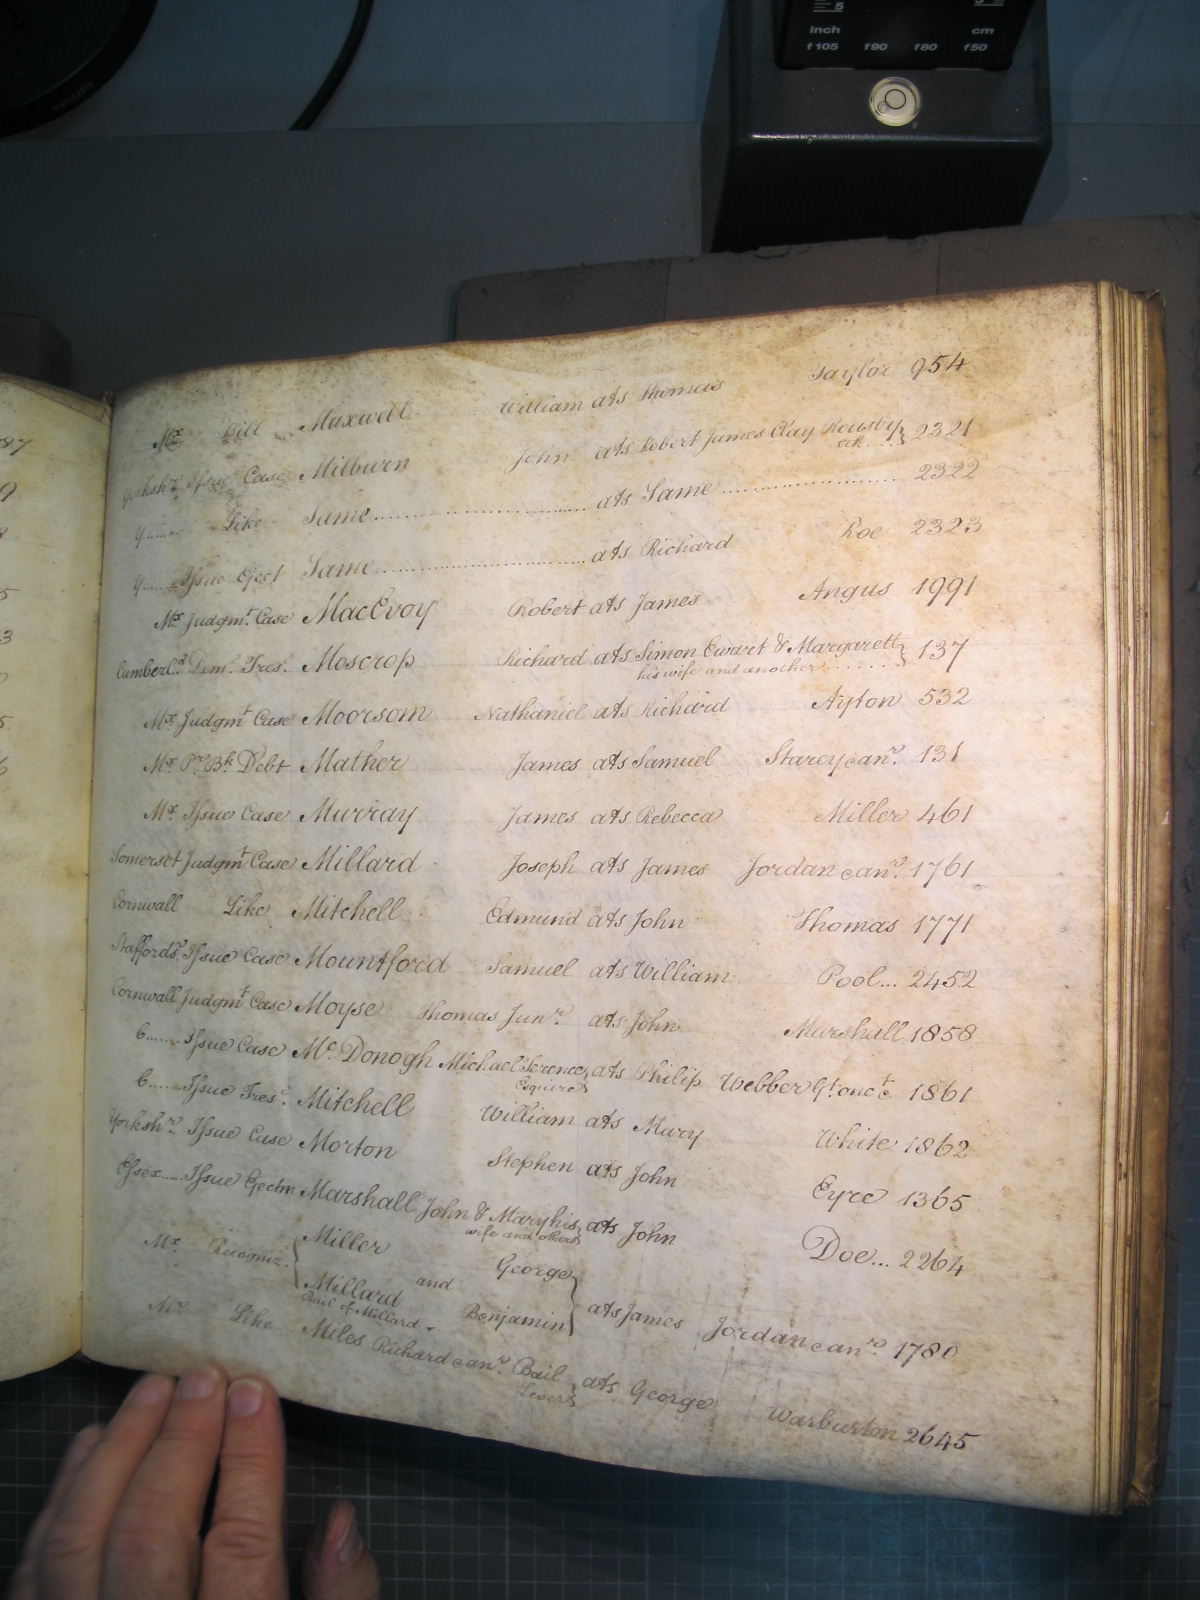 inch cm
f105 f90 f80 f50
Mx Bill Maxwell William ats Thomas Taylor 954
Yorkshre Issue Case Milburn John ats Robert James Clay Rousby 2321
Y...... Like Same ........ ats Same ........ 2322
Y...... Issue Eject Same ........ ats Richard Roe 2323
Mx Judgmt. Case MacEvoy Robert ats James Angus 1991
Cumberld. Tres. Moscrop Richard ats Simon Ewart & Margarett } 137
his wife and another
Mx Judgmt Case Moorsom Nathaniel ats Richard Ayton 532
Mx Pr. Bk. Debt Mather James ats Samuel 131
Mx Issue Case Murray James ats Rebecca Miller 461
Somerset Judgmt Case Millard Joseph ats James Jordan canr. 1761
Cornwall Like Mitchell Edmund ats John Thomas 1771
Staffords. Issue Case Mountford Samuel ats William Pool... 2452
Cornwall Judgmt Case Moyse Thomas Junr. ats John Marshall 1858
C...... Issue Case Mc. Donogh Michael Terence } ats Philip Webber Gt. one &c 1861
Esquire
C...... Issue Tres. Mitchell William ats Mary White 1862
Yorkshre. Issue Case Morton Stephen ats John Eyre 1365
Essex.... Issue Ejectm Marshall John & Mary his } ats John Doe... 2264
wife and others
Mx Recogniz. { Miller George } ats James Jordan canr. 1780
Millard and Benjamin
Bail of Millard
Mx Like Miles Richard canr. Bail } ats George Warburton 2645